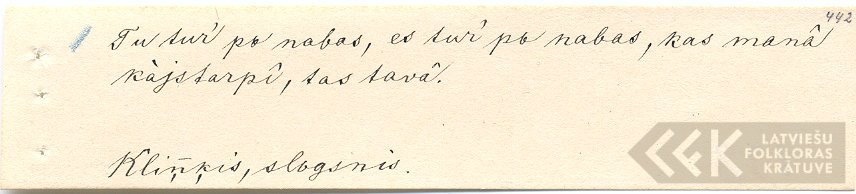 442
Tu turi po nabas, es turi po nabas, kas manâ
kàjstarpî, tas tavâ.
Kliņķis, slogsnis.
LATVIEŠU
FOLKLORAS
KRĀTUVE